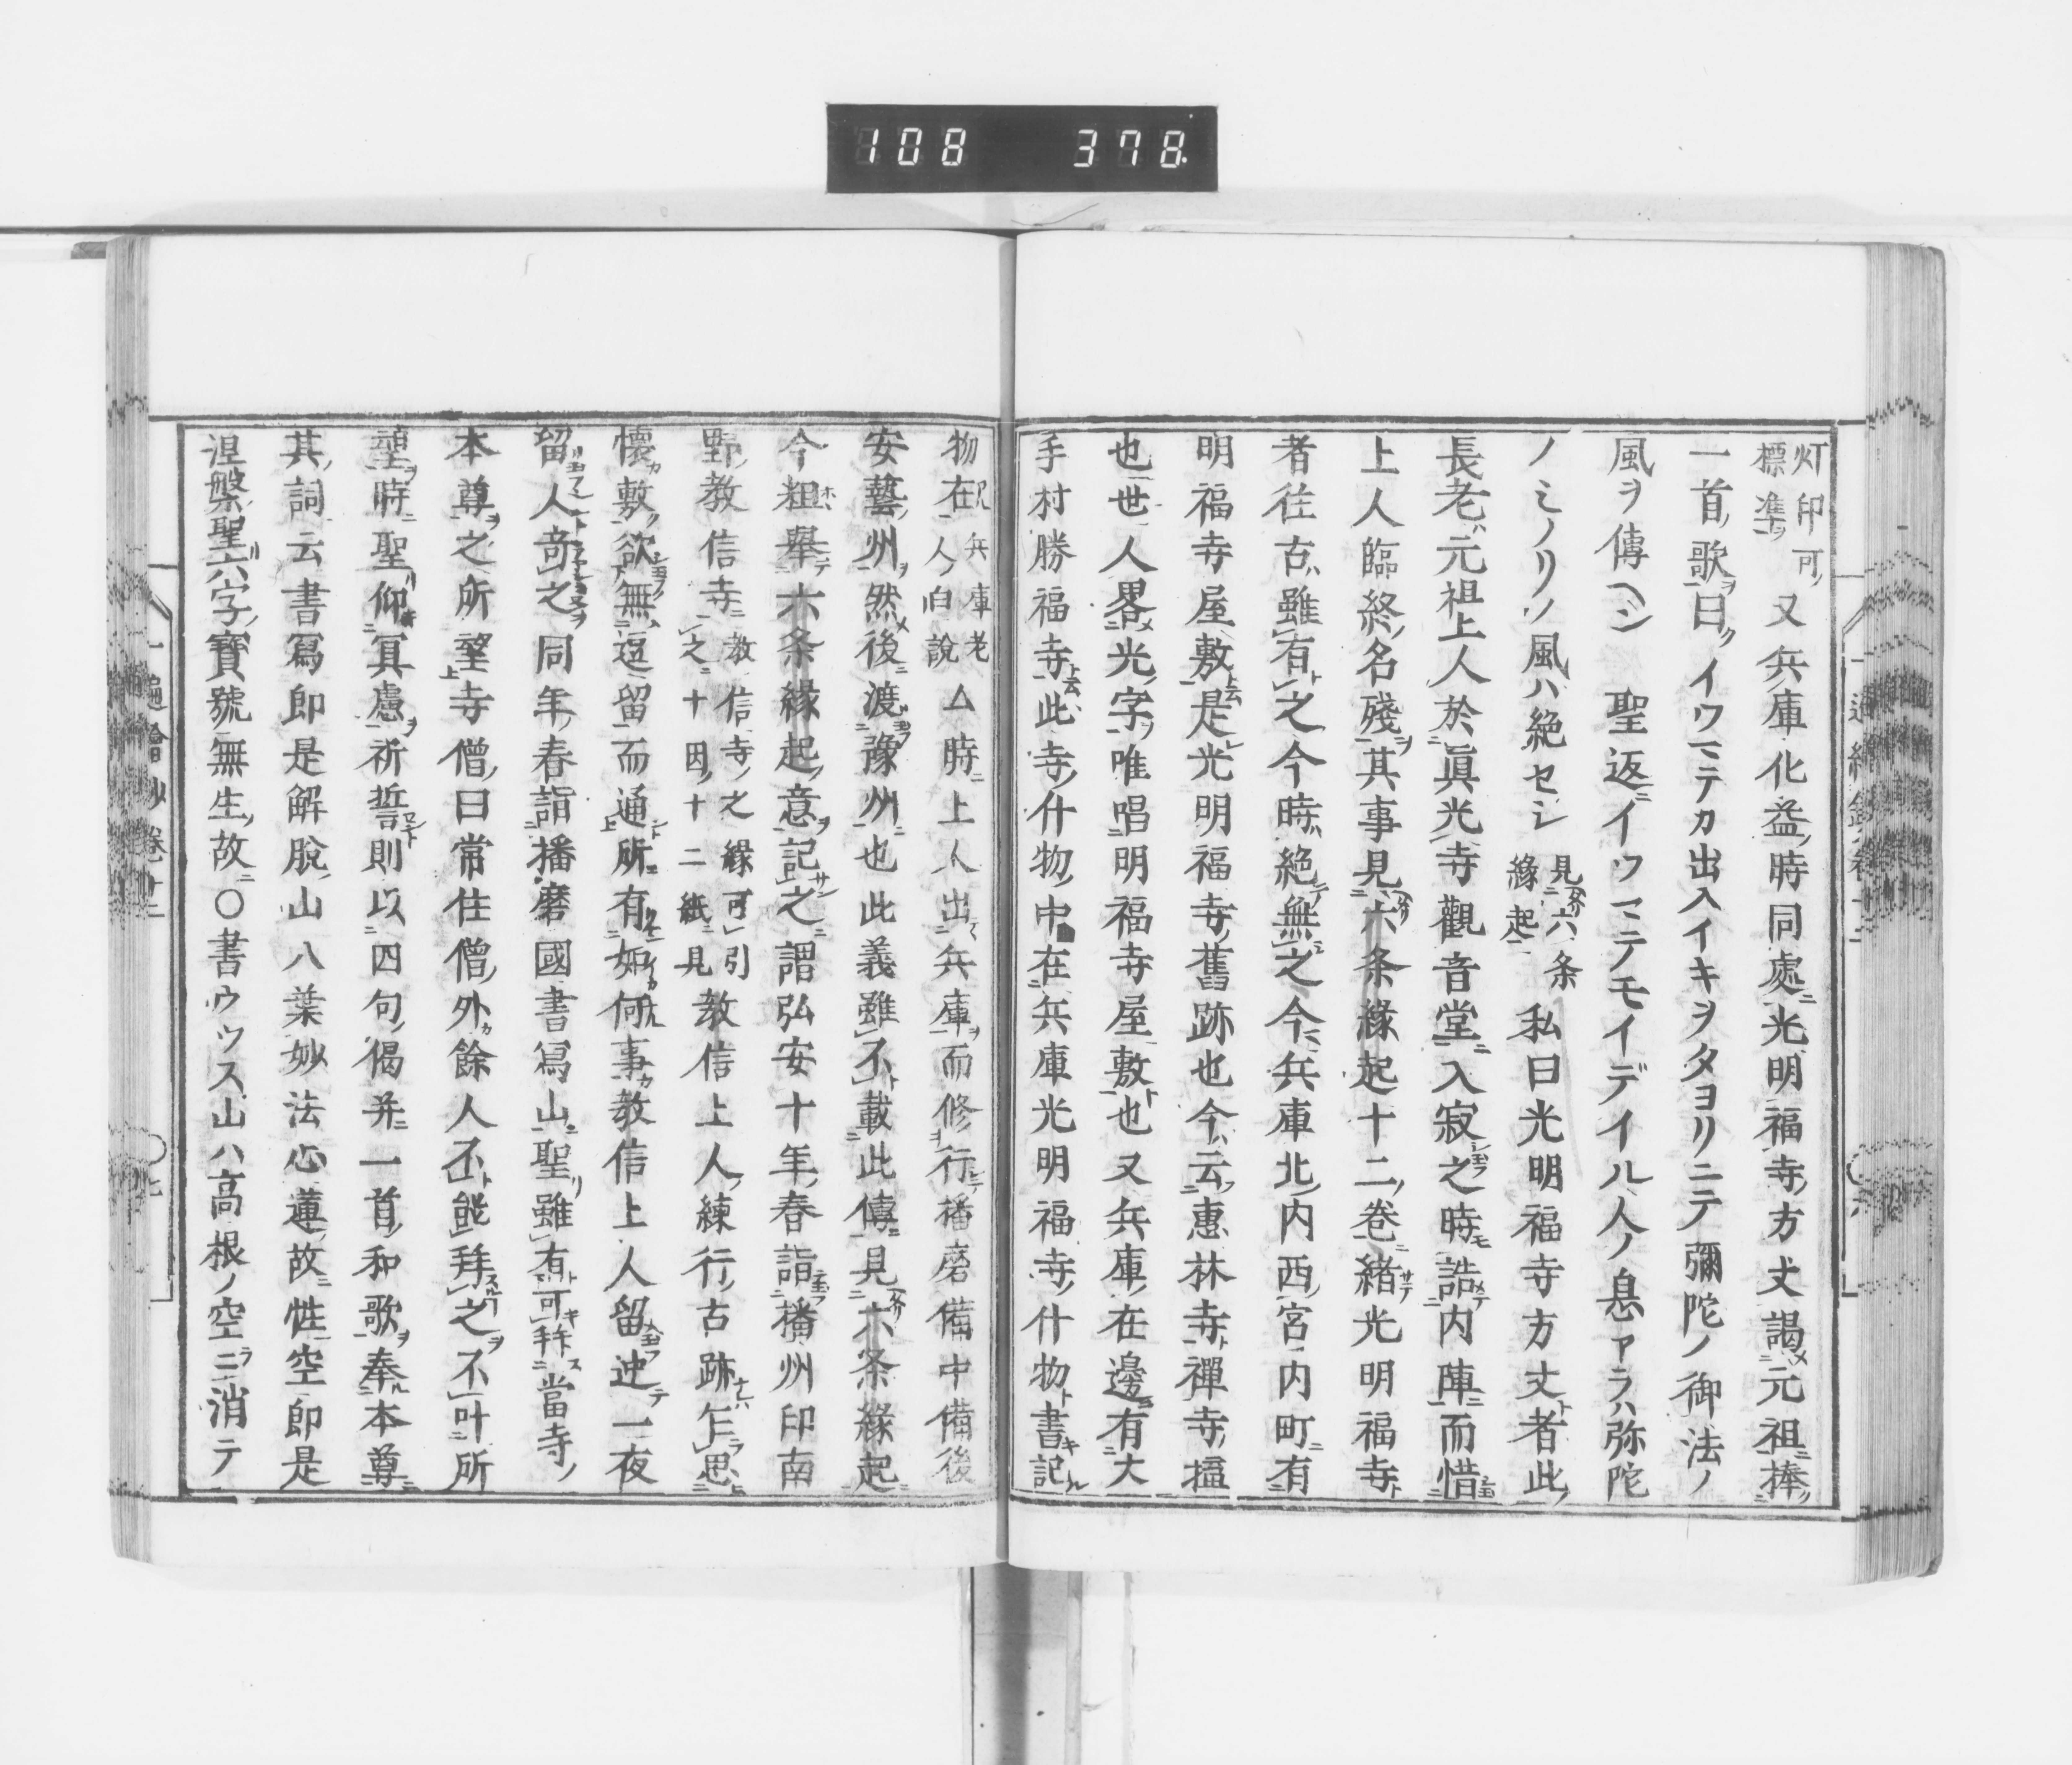 108 378
灯印可標準又兵庫化益時同處光明福寺方丈謁元祖捧
一首歌曰イウミテカ出入イキヲタヨリニテ彌陀ノ御法ノ
風ヲ傳ヘシ 聖返イウミテモイデイル人ノ息アラハ弥陀
ノミノリノ風ハ絶セシ見六条緣起私曰光明福寺方丈者此
長老元祖上人於眞光寺觀音堂入寂之時詣内陣而惜
上人臨終名殘其事見六条緣起十二卷緒光明福寺
者往古雖有之今時絶無之今兵庫北内西宮内町有
明福寺屋敷是光明福寺舊跡也今云惠林寺禪寺
也世人畧光字唯唱明福寺屋敷也又兵庫在邊有大
手村勝福寺此寺什物中在兵庫光明福寺什物書記
物在兵庫老人白說厶時上人出兵庫而修行播磨備中備後
安藝州然後渡豫州也此義雖不載此傳見六条緣起
今粗舉六条緣起意記之謂弘安十年春詣播州印南
野教信寺教信寺之緣可引之十因十二紙見教信上人練行古跡乍思
懷敷欲無逗留而通所有如何事教信上人留迚一夜
留人奇之同年春詣播磨國書寫山聖雖有可拜當寺
本尊之所望寺僧曰常住僧外餘人不能拜之不叶所
望時聖仰冥慮祈誓則以四句偈并一首和歌奉本尊
其詞云書寫即是解脫山八葉妙法心蓮故性空即是
涅槃聖六字寶號無生故〇書ウツス山ハ高根ノ空ニ消テ